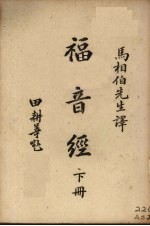 馬相伯先生譯
福音經
下冊
田耕莘題
226